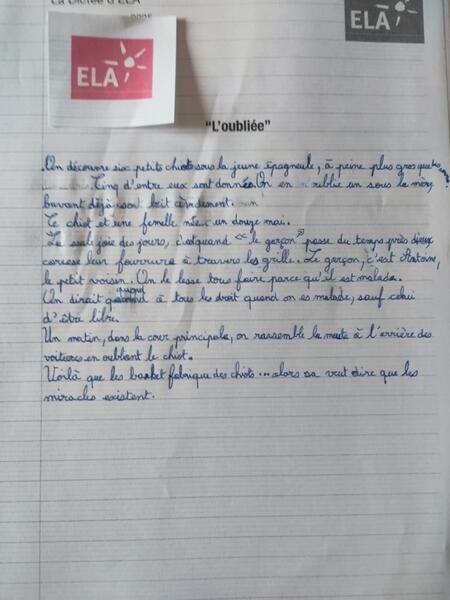 La Dictée d'ELA
ELA
ELA
"L'oubliée"
On découvre six petits chiots sous la jeune épagneule, à peine plus gros que
Cinq d'entre eux sont données. On en oublie un sous la mère,
buvant déjà son lait avidement.
Le chiot est une femelle née un douze mai.
La seule joie des jours, c'est quand « le garçon » passe du temps près d'eux
caresse leur fourrure à travers les grille. Le garçon, c'est Antoine,
le petit voisin. On le lesse tous faire parce qu'il est malade.
On dirait qu'on à tous les droit quand on es malade, sauf celui
d'être libre.
Un matin, dans la cour principale, on rassemble la meute à l'arrière des
voitures en oubliant le chiot.
Voilà que les basket fabrique des chiots... alors sa veut dire que les
miracles existent.